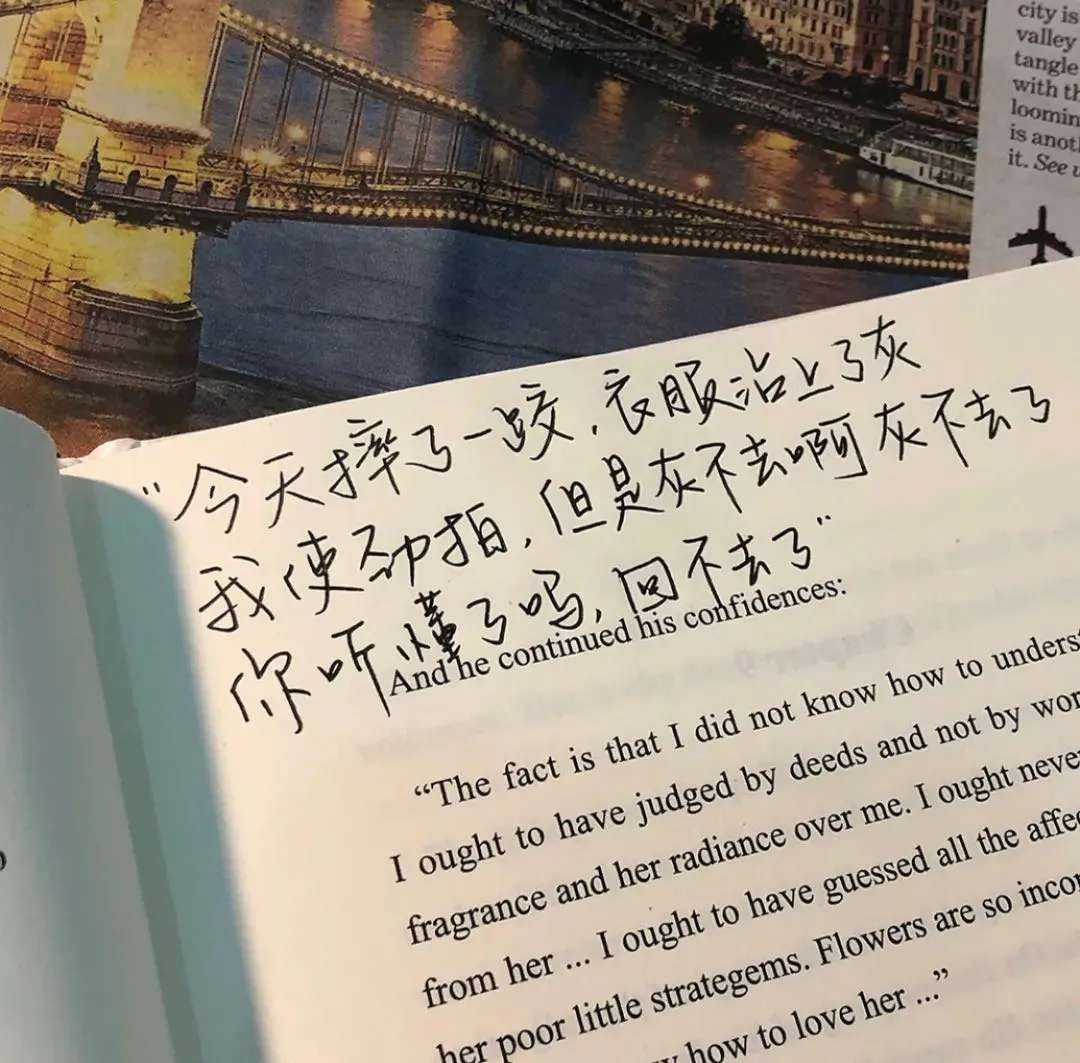 city is
valley
tangle
with th
loomin
is anot
it. See u
“今天摔了一跤,衣服沾上了灰
我使劲拍,但是灰不去啊 灰不去了
你听懂了吗,回不去了”
And he continued his confidences:
“The fact is that I did not know how to underst
I ought to have judged by deeds and not by wor
fragrance and her radiance over me. I ought neve
from her ... I ought to have guessed all the affec
her poor little strategems. Flowers are so incon
how to love her ...”